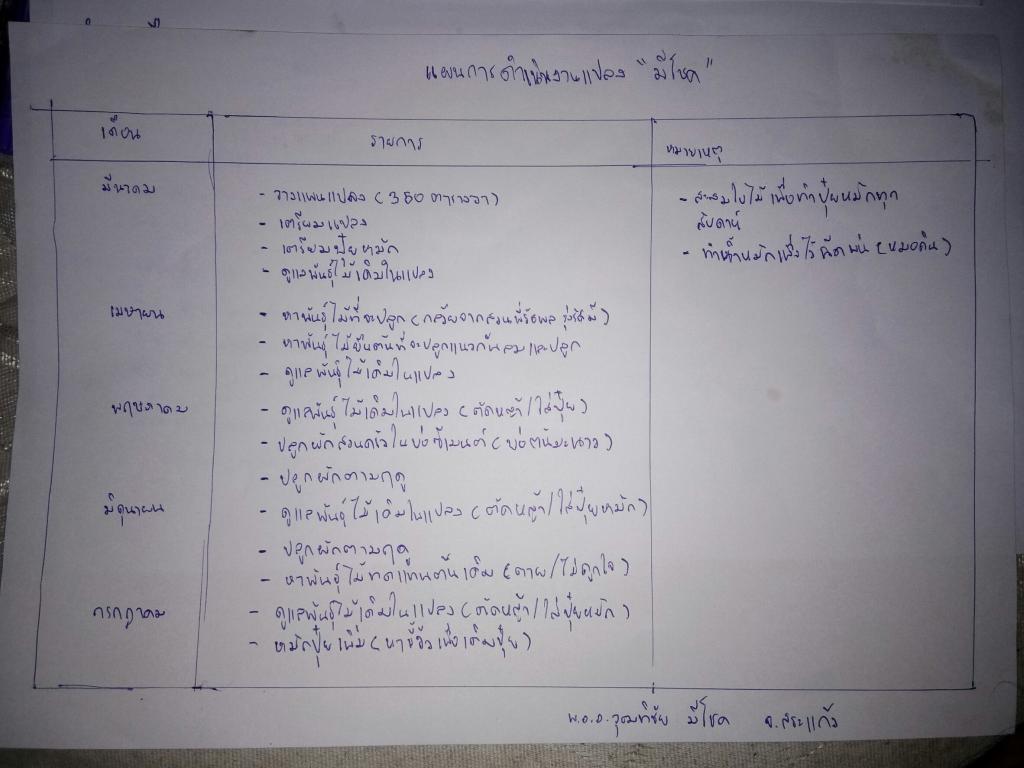 แผนการดำเนินงานแปลง "มีโชค"
เดือน รายการ หมายเหตุ
มีนาคม - วางแผนแปลง (350 ตารางวา) - สะสมใบไม้เพื่อทำปุ๋ยหมักทุก
สัปดาห์
- เตรียมแปลง
- เตรียมปุ๋ยหมัก - ทำน้ำหมักเพื่อไว้ฉีดพ่น (หมอดิน)
- ดูแลพันธุ์ไม้เดิมในแปลง
เมษายน - หาพันธุ์ไม้ที่จะปลูก (กล้วยจากสวนพี่
- หาพันธุ์ไม้ยืนต้นที่จะปลูกแนวกันลมและปลูก
- ดูแลพันธุ์ไม้เดิมในแปลง
พฤษภาคม - ดูแลพันธุ์ไม้เดิมในแปลง (ตัดหญ้า/ใส่ปุ๋ย)
- ปลูกผักสวนครัวในบ่อซีเมนต์ (บ่อต้นมะนาว)
- ปลูกผักตามฤดู
มิถุนายน - ดูแลพันธุ์ไม้เดิมในแปลง (ตัดหญ้า/ใส่ปุ๋ยหมัก)
- ปลูกผักตามฤดู
- หาพันธุ์ไม้ทดแทนต้นเดิม (ตาย/ไม่ถูกใจ)
กรกฎาคม - ดูแลพันธุ์ไม้เดิมในแปลง (ตัดหญ้า/ใส่ปุ๋ยหมัก)
- หมักปุ๋ยเพิ่ม (หาขี้วัวเพื่อเติมปุ๋ย)
พ.อ.อ.วุฒิชัย มีโชค จ.สระแก้ว